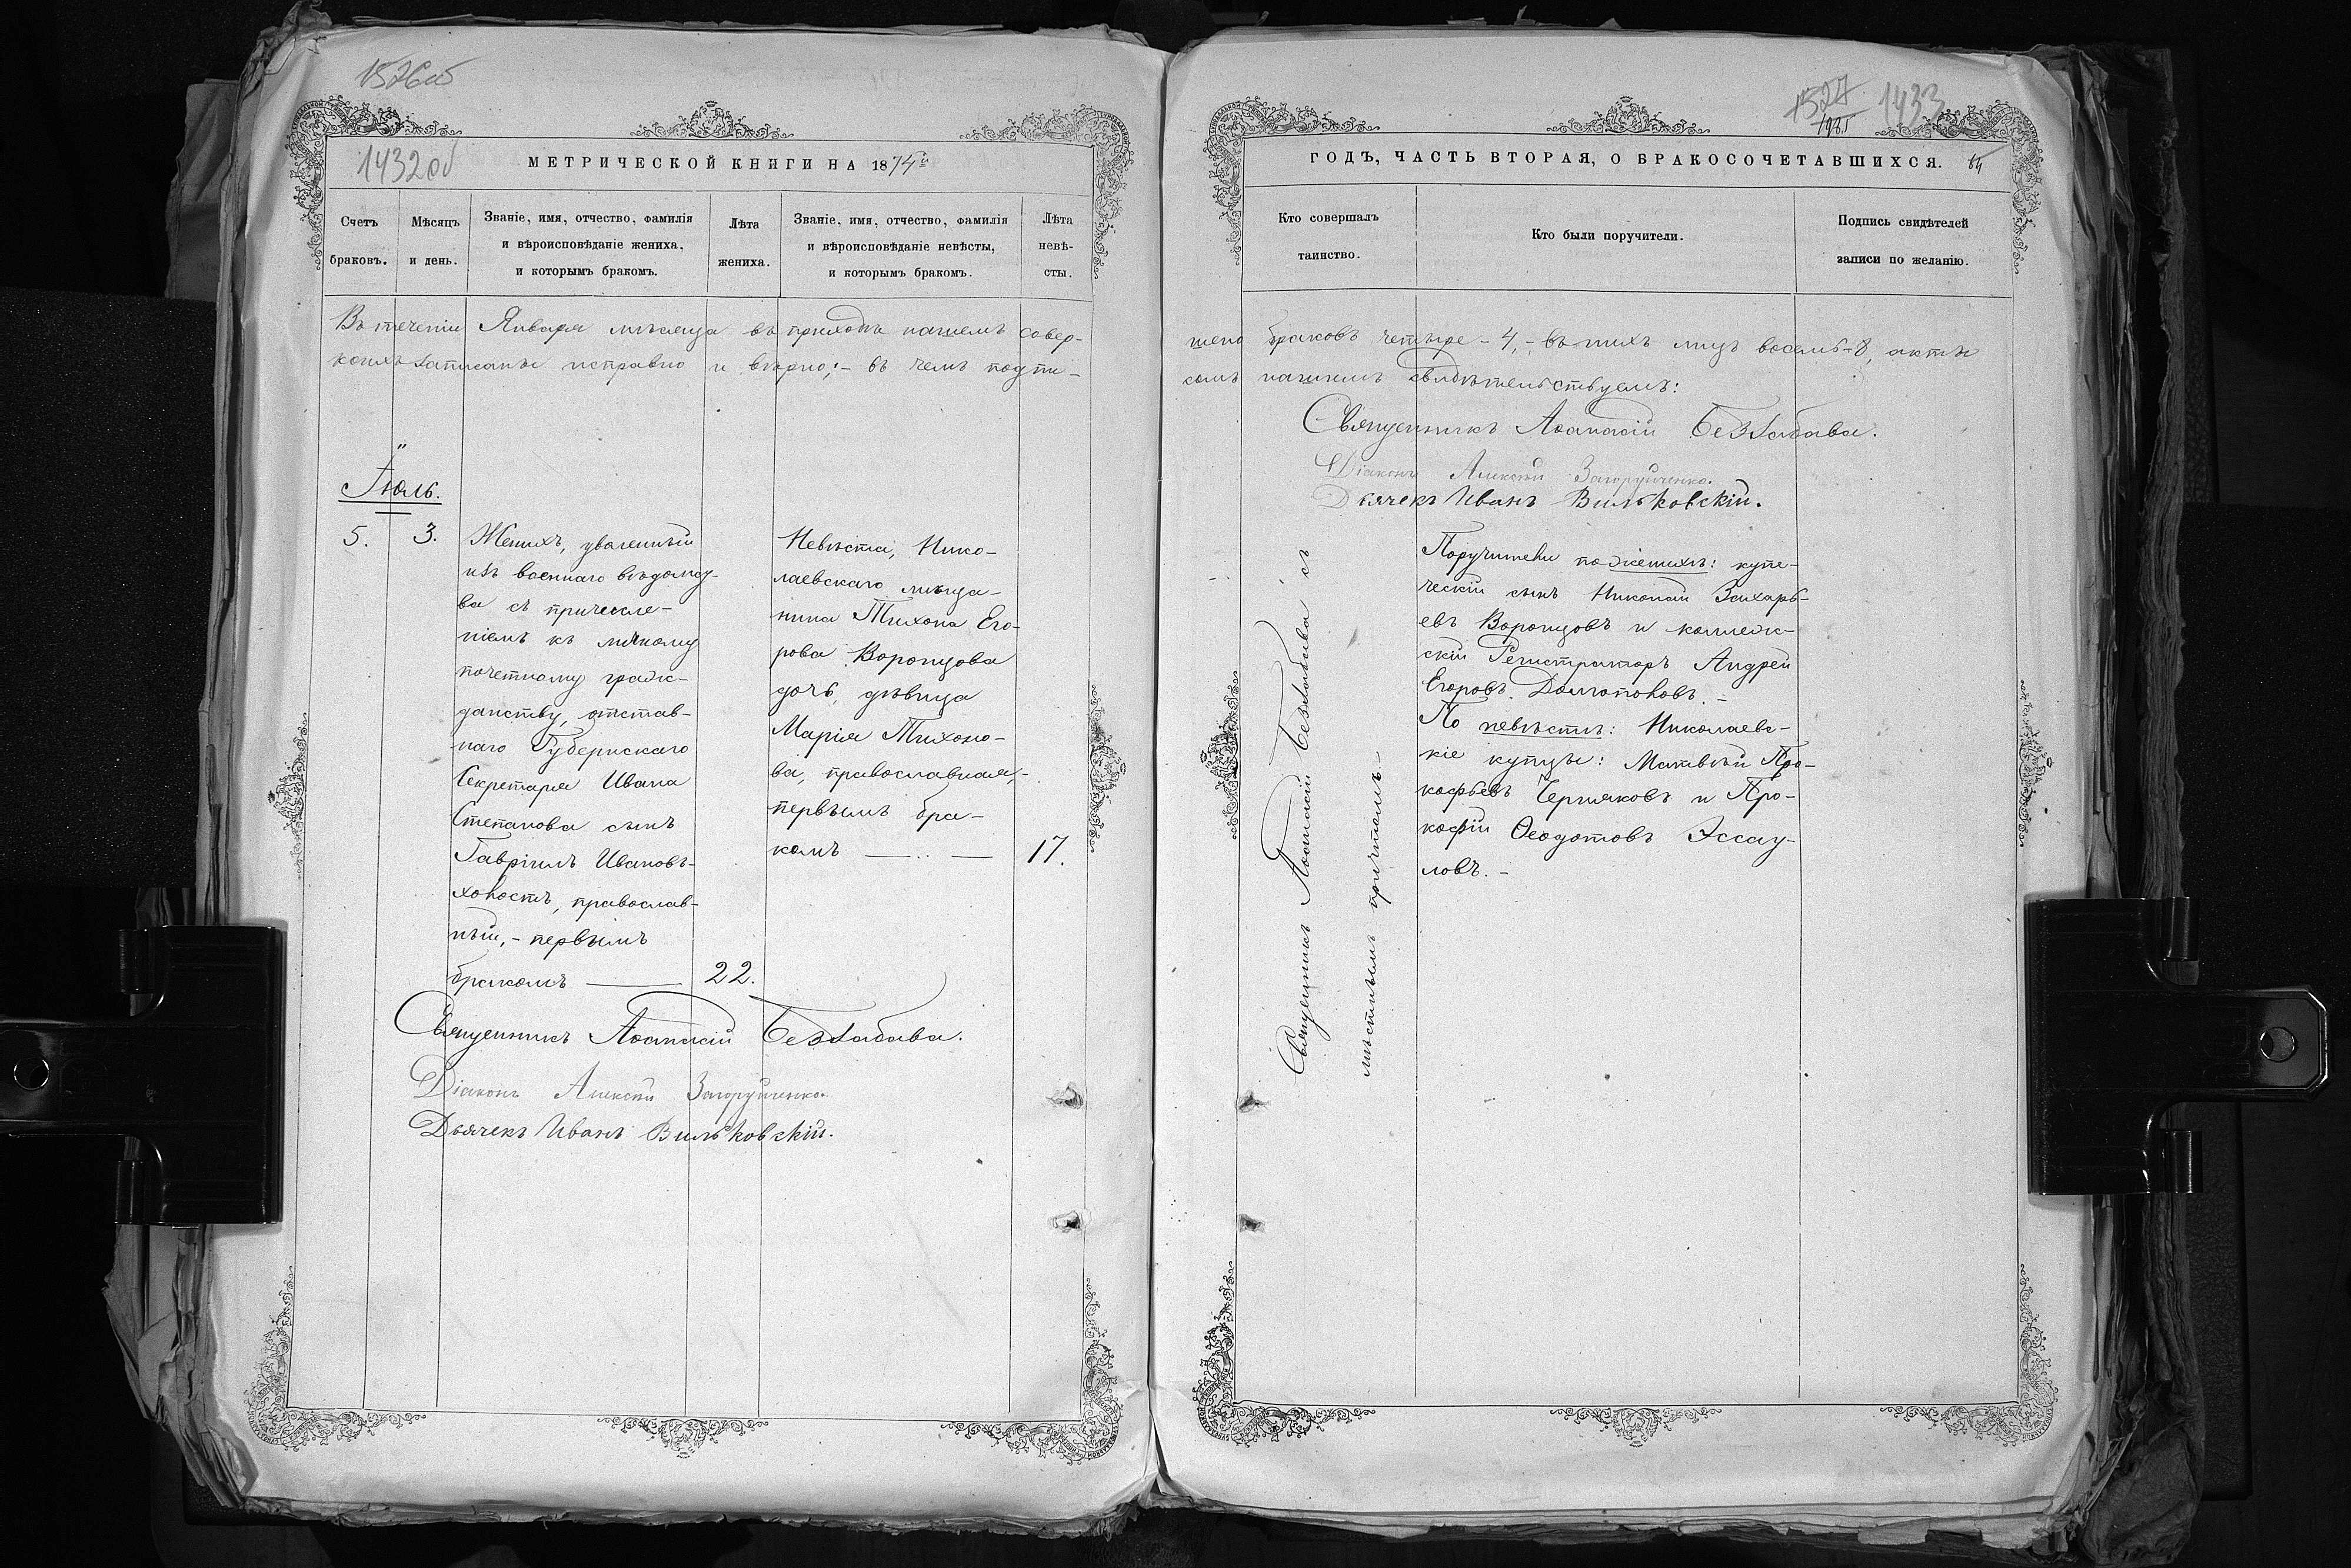 1526об
1432об
МЕТРИЧЕСКОЙ КНИГИ НА 1874й
Счетъ браковъ.
Мѣсяцъ и день.
Званіе, имя, отчество, фамилія и вѣроисповѣданіе жениха, и которымъ бракомъ.
Лѣта жениха.
Званіе, имя, отчество, фамилія и вѣроисповѣданіе невѣсты, и которымъ бракомъ.
Лѣта невѣ-сты.
Въ теченіи Января мѣсяца въ приходѣ нашемъ совер-
коихъ записаны исправно и вѣрно; - въ чемъ подпи-
Іюль.
5.
3.
Женихъ, уволенный
изъ военнаго вѣдомст-
ва съ причисле-
ніемъ къ личному
почетному граж-
данству, отстав-
наго Губернскаго
Секретаря Ивана
Степанова сынъ
Гавріилъ Ивановъ-
холостъ, православ-
ный, - первымъ
бракомъ
22.
Невѣста, Нико-
лаевскаго мѣща-
нина Тихона Его-
рова Воронцова
дочь, дѣвица
Марія Тихоно-
ва, православная,-
первымъ бра-
комъ
17.
Священникъ Аѳанасій Беззабава.
Діаконъ Алексѣй Загоруйченко.
Дьячекъ Иванъ Вильковскій.
1527
1433
ГОДЪ, ЧАСТЬ ВТОРАЯ, О БРАКОСОЧЕТАВШИХСЯ.
Кто совершалъ таинство.
Кто были поручители.
Подпись свидѣтелей записи по желанію.
шено браковъ четыре - 4, - въ нихъ лицъ восемь - 8, акты
сомъ нашимъ свидѣтельствуемъ:
Священникъ Аѳанасій Беззабава.
Діаконъ Алексѣй Загоруйченко.
Дьячекъ Иванъ Вильковскій.
Священникъ Аѳанасій Беззабава съ
мѣстнымъ причтомъ.
Поручители по женихѣ: купе-
ческій сынъ Николай Захарь-
евъ Воронцовъ и коллеж-
скій Регистраторъ Андрей
Егоровъ Долгополовъ. -
По невѣстѣ: Николаевс-
кіе купцы: Матвѣй Про-
кофьевъ Черняковъ и Про-
кофій Ѳеодотовъ Эссау-
ловъ. -